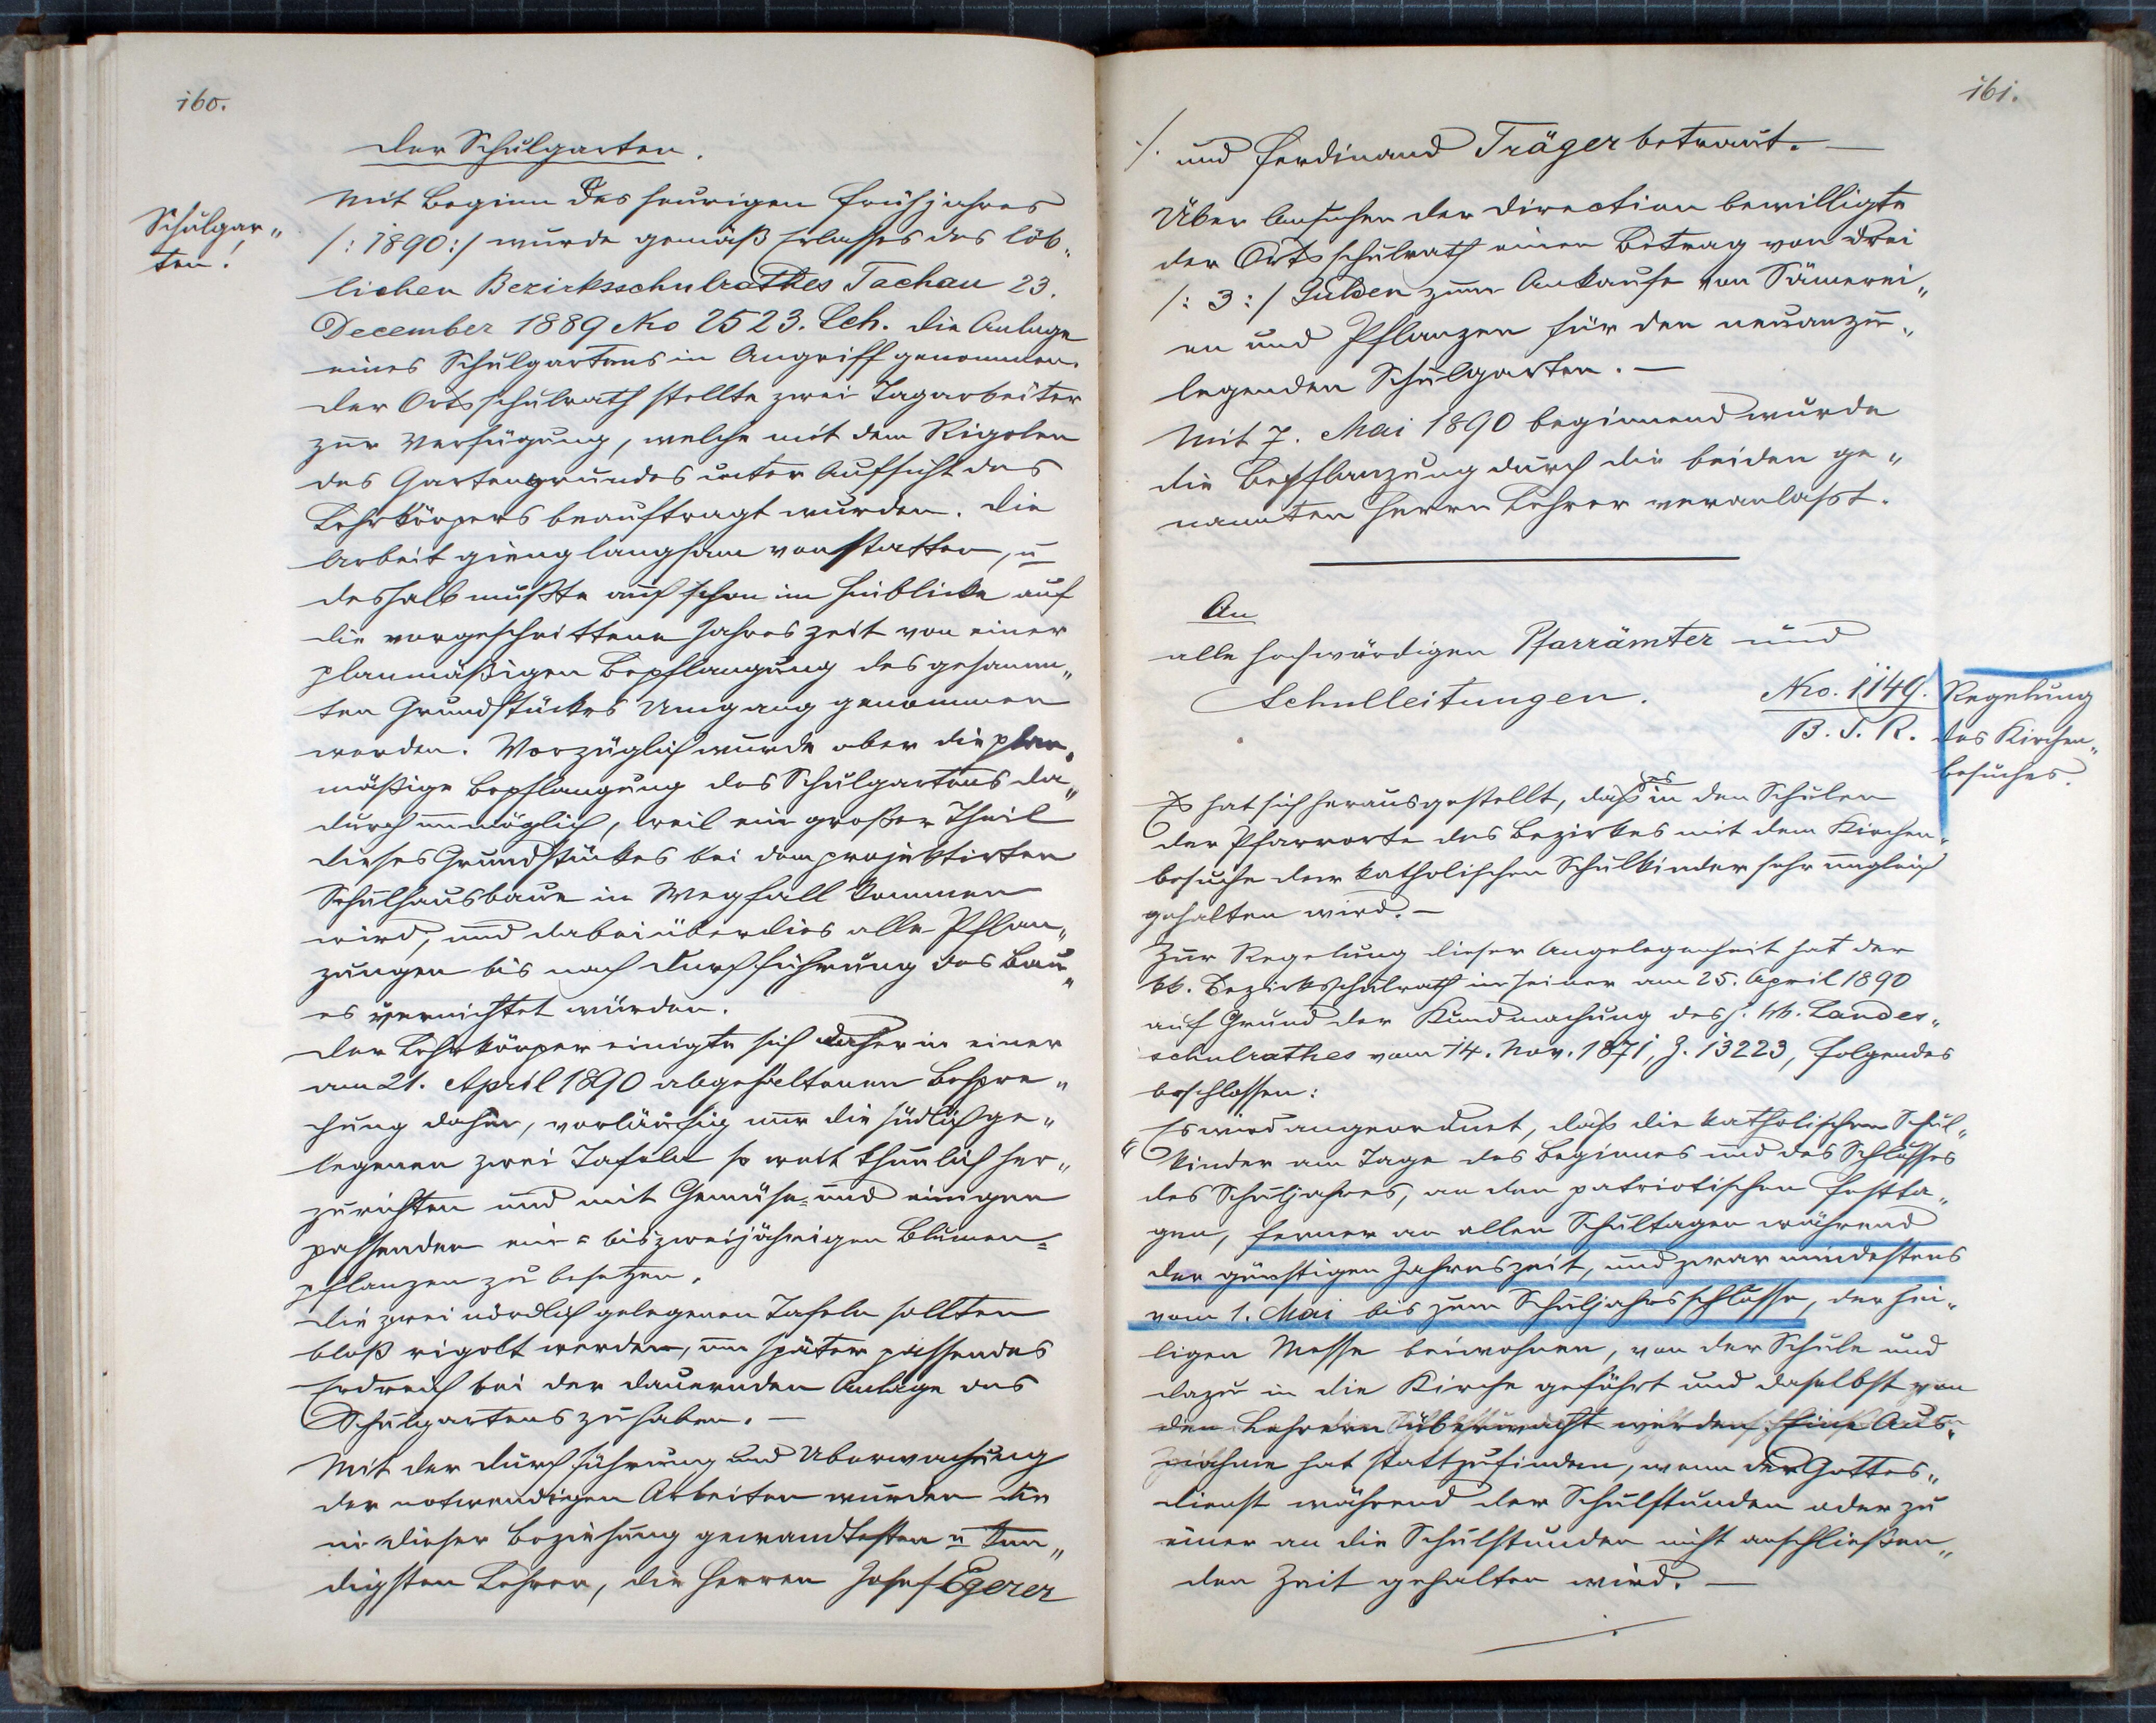 160.
Der Schulgarten.
Schulgar„
ten!
Mit Beginn des heurigen Frühjahres
/: 1890 :/ wurde gemäß Erlasses des löb„
lichen Bezirksschulrathes Tachau 23.
December 1889 Nro 2523. Sch. die Anlage
eines Schulgartens in Angriff genommen.
Der Ortsschulrath stellte zwei Tagarbeiter
zur Verfügung, welche mit dem Rigolen
des Gartengrundes unter Aufsicht des
Lehrkörpers beauftragt wurden. Die
Arbeit gieng langsam vonstatten, u
deshalb mußte auch schon im Hinblicke auf
die vorgeschrittene Jahreszeit von einer
planmäßigen Bepflanzung des gesamm„
ten Grundstückes Umgang genommen
werden. Vorzüglich wurde aber die plan„
mäßige Bepflanzung des Schulgartens da„
durch unmöglich, weil ein großer Theil
dieses Grundstückes bei dem projektirten
Schulhausbaue in Wegfall kommen
wird, und dabei überdies alle Pflan„
zungen bis nach Durchführung des Bau„
es vernichtet würden.
Der Lehrkörper einigte sich daher in einer
am 21. April 1890 abgehaltenen Bespre„
chung dahin, vorläufig nur die südlich ge„
legenen zwei Tafeln so weit thunlich her„
zurichten und mit Gemüse- und einigen
passenden ein- bis zweijährigen Blumen-
pflanzen zu besetzen.
Die zwei nördlich gelegenen Tafeln sollten
bloß rigolt werden, um später passendes
Erdreich bei der dauernden Anlage des
Schulgartens zu haben. —
Mit der Durchführung und Überwachung
der notwendigen Arbeiten wurden die
in dieser Beziehung gewandtesten u kun„
digsten Lehrer, die Herren Josef Egerer
161.
./. und Ferdinand Träger betraut. —
Über Ansuchen der Direction bewilligte
der Ortsschulrath einen Betrag von drei
/: 3 :/ Gulden zum Ankaufe von Sämerei„
en und Pflanzen für den neuanzu„
legenden Schulgarten. —
Mit 7. Mai 1890 beginnend wurde
die Bepflanzung durch die beiden ge„
nannten Herrn Lehrer veranlaßt.
An
alle hochwürdigen Pfarrämter und
Schulleitungen.
Nro. 1149.
B. S. R.
Regelung
des Kirchen„
besuches.
Es hat sich herausgestellt, daß es in den Schulen
der Pfarrorte des Bezirkes mit dem Kirchen„
besuche der katholischen Schulkinder sehr ungleich
gehalten wird. —
Zur Regelung dieser Angelegenheit hat der
kk. Bezirksschulrath in seiner am 25. April 1890
auf Grund der Kundmachung des h. kk. Landes„
schulrathes vom 14. Nov. 1871, Z. 13223, folgendes
beschlossen:
„Es wird angeordnet, daß die katholischen Schul„
kinder am Tage des Beginnes und des Schlusses
des Schuljahres, an den patriotischen Festta„
gen, ferner an allen Schultagen während
der günstigen Jahreszeit, und zwar mindestens
vom 1. Mai bis zum Schuljahrsschlusse, der hei„
ligen Messe beiwohnen, von der Schule und
dazu in die Kirche geführt und daselbst von
den Lehrern überwacht werden. Eine Aus„
nahme hat stattzufinden, wenn der Gottes„
dienst während der Schulstunden oder zu
einer an die Schulstunden nicht anschließen„
den Zeit gehalten wird. —